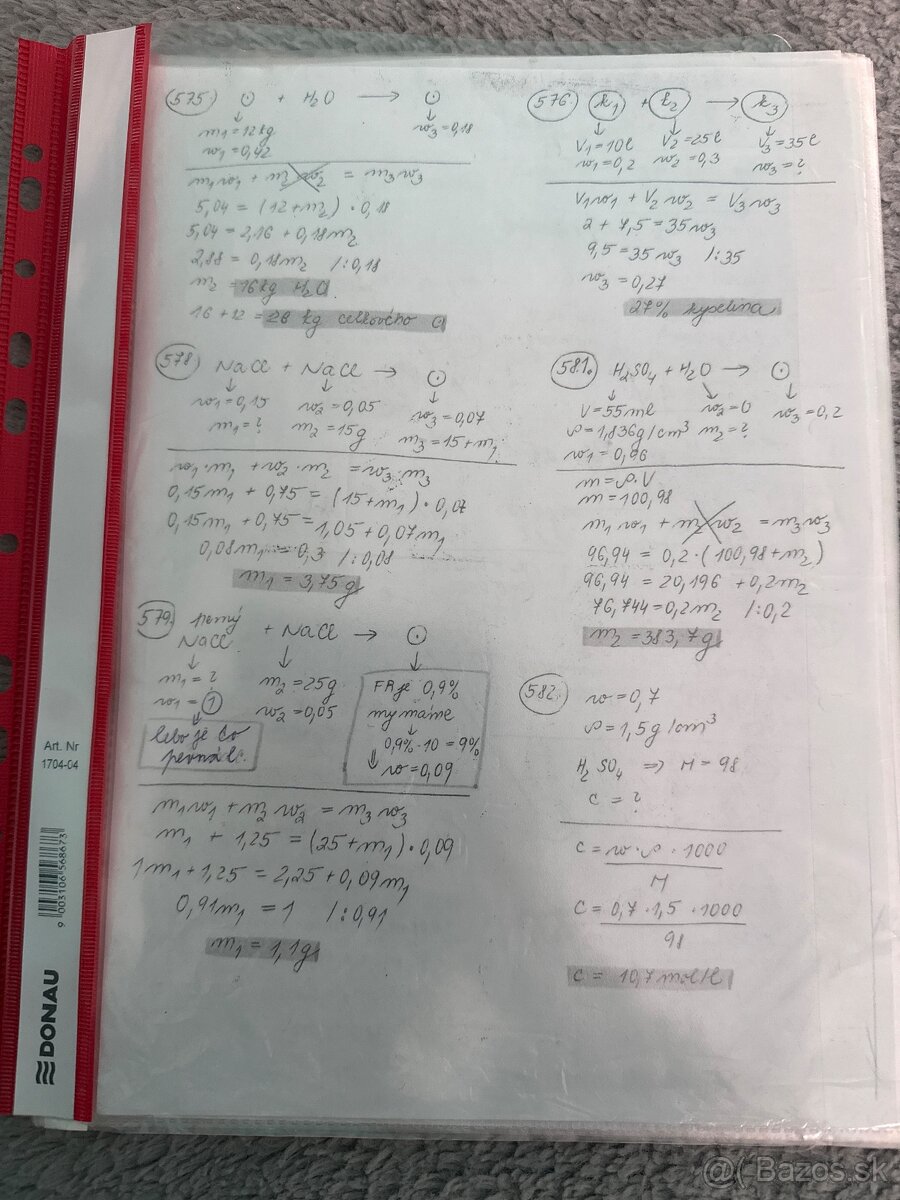 575) ⊙ + H2O → ⊙
m1 = 12kg
w1 = 0,42
w3 = 0,18
m1w1 + m2w2 = m3w3
5,04 = (12+m2) · 0,18
5,04 = 2,16 + 0,18m2
2,88 = 0,18m2 /:0,18
m2 = 16kg H2O
16 + 12 = 28 kg celkového ⊙
576. k1 + k2 → k3
V1 = 10l V2 = 25l V3 = 35l
w1 = 0,2 w2 = 0,3 w3 = ?
V1w1 + V2w2 = V3w3
2 + 7,5 = 35w3
9,5 = 35w3 /:35
w3 = 0,27
27% kyselina
578) NaCl + NaCl → ⊙
w1 = 0,15 w2 = 0,05 w3 = 0,07
m1 = ? m2 = 15g m3 = 15 + m1
w1·m1 + w2·m2 = w3·m3
0,15m1 + 0,75 = (15+m1) · 0,07
0,15m1 + 0,75 = 1,05 + 0,07m1
0,08m1 = 0,3 /:0,08
m1 = 3,75g
581. H2SO4 + H2O → ⊙
V = 55ml w2 = 0 w3 = 0,2
ρ = 1,836g/cm³ m2 = ?
w1 = 0,96
m = ρ·V
m = 100,98
m1w1 + m2w2 = m3w3
96,94 = 0,2·(100,98+m2)
96,94 = 20,196 + 0,2m2
76,744 = 0,2m2 /:0,2
m2 = 383,7g
579. pevný
NaCl + NaCl → ⊙
m1 = ? m2 = 25g
w1 = 1 w2 = 0,05
lebo je to
pevná l.
FR je 0,9%
my máme
0,9%·10 = 9%
w = 0,09
m1w1 + m2w2 = m3w3
m1 + 1,25 = (25+m1) · 0,09
1m1 + 1,25 = 2,25 + 0,09m1
0,91m1 = 1 /:0,91
m1 = 1,1g
582. w = 0,7
ρ = 1,5g/cm³
H2SO4 ⇒ M = 98
c = ?
c = w·ρ·1000
M
c = 0,7·1,5·1000
98
c = 10,7mol/l
Art. Nr
1704-04
9 003106 568673
DONAU
@( Bazos.sk